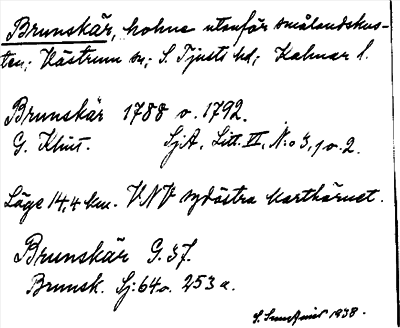 Brunskär, holme utanför smålandskus-
ten; Västrum sn; S. Tjusts hd; Kalmar l.
Brunskär 1788 o. 1792.
G. Klint. SjA, Litt. VI, N:o 3, 1 o. 2.
Läge 14,4 km. VNV sydöstra karthörnet.
Brunskär G. 37.
Brunsk. Sj: 64 o. 253 a.
S. 1938.